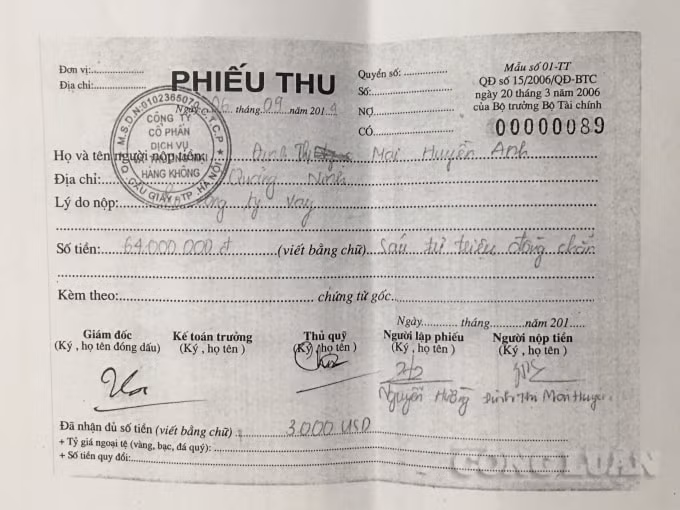 Đơn vị:
Địa chỉ:
PHIẾU THU
Ngày 06 tháng 09 năm 201
Quyển số:
Số:
NỢ
CÓ
Mẫu số 01-TT
QĐ số 15/2006/QĐ-BTC
ngày 20 tháng 3 năm 2006
của Bộ trưởng Bộ Tài chính
00000089
M.S.D.N:0102365072-C.T.C.P
CÔNG TY
CỔ PHẦN
DỊCH VỤ
HÀNG KHÔNG
Q. CẦU GIẤY - TP. HÀ NỘI
Họ và tên người nộp tiền: Đinh Thị Mai Huyền Anh
Địa chỉ: Quảng Ninh
Lý do nộp: Công ty vay
Số tiền: 64.000.000 đ (viết bằng chữ) Sáu tư triệu đồng chẵn
Kèm theo: chứng từ gốc.
Ngày tháng năm 201
Giám đốc Kế toán trưởng Thủ quỹ Người lập phiếu Người nộp tiền
(Ký , họ tên đóng dấu) (Ký , họ tên ) (Ký , họ tên ) (Ký , họ tên ) (Ký , họ tên )
Nguyễn Hường Đinh Thị
Đã nhận đủ số tiền (viết bằng chữ) : 3.000 USD
+ Tỷ giá ngoại tệ (vàng, bạc, đá quý):
+ Số tiền quy đổi:
CONGLUAN